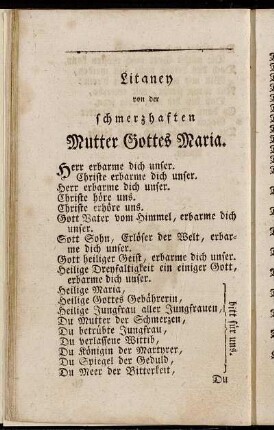 Litaney
von der
schmerzhaften
Mutter Gottes Maria.
Herr erbarme dich unser.
Christe erbarme dich unser.
Herr erbarme dich unser.
Christe höre uns.
Christe erhöre uns.
Gott Vater vom Himmel, erbarme dich
unser.
Gott Sohn, Erlöser der Welt, erbar-
me dich unser.
Gott heiliger Geist, erbarme dich unser.
Heilige Dreyfaltigkeit ein einiger Gott,
erbarme dich unser.
Heilige Maria,
Heilige Gottes Gebährerin,
Heilige Jungfrau aller Jungfrauen,
Du Mutter der Schmerzen,
Du betrübte Jungfrau,
Du verlassene Wittib,
Du Königin der Martyrer,
Du Spiegel der Geduld,
Du Meer der Bitterkeit,
bitt für uns.
Du